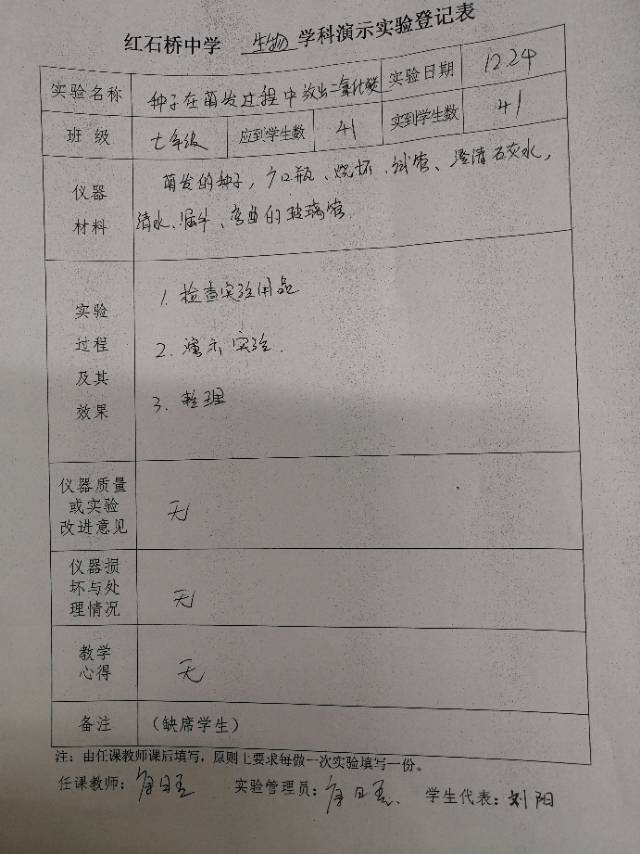 红石桥中学 生物 学科演示实验登记表
实验名称 种子在萌发过程中放出二氧化碳 实验日期 12.24
班 级 七年级 应到学生数 41 实到学生数 41
仪器 萌发的种子,广口瓶、烧杯、试管、澄清石灰水,
材料 清水、漏斗、弯曲的玻璃管.
实验 1. 检查实验用品
过程 2. 演示实验.
及其
效果 3. 整理
仪器质量
或实验 无
改进意见
仪器损
坏与处 无
理情况
教学
心得 无
备注 (缺席学生)
注:由任课教师课后填写,原则上要求每做一次实验填写一份。
任课教师: 实验管理员: 学生代表:刘阳